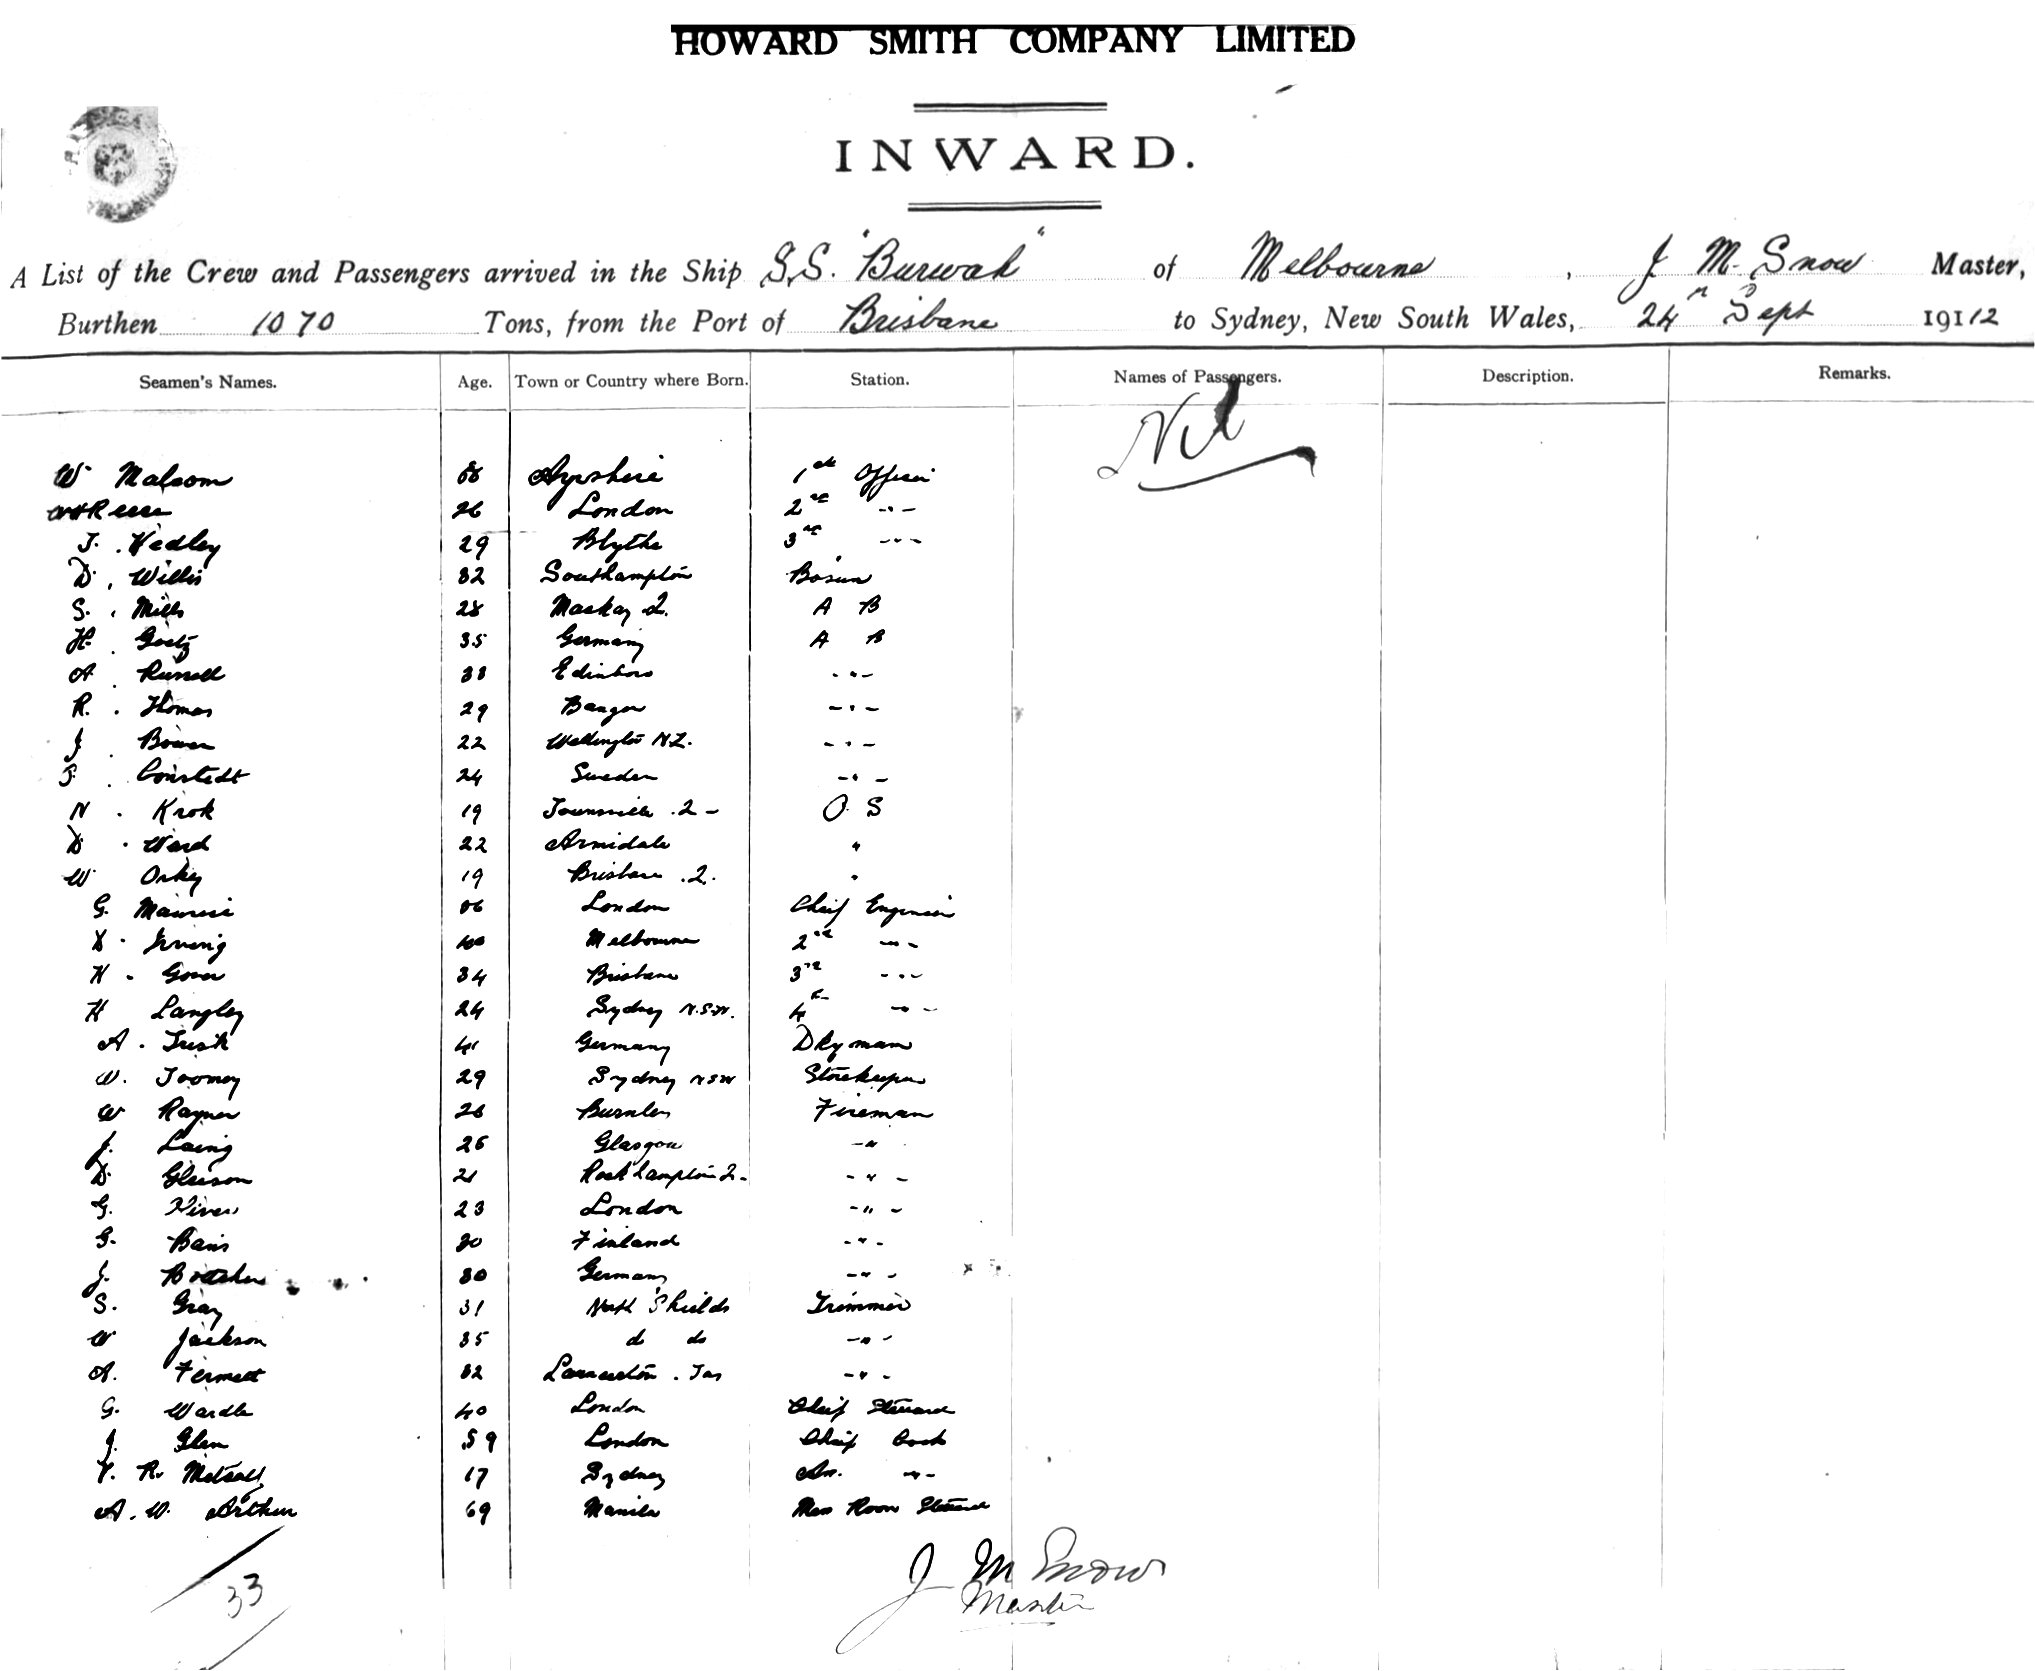 HOWARD SMITH COMPANY LIMITED
INWARD.
A List of the Crew and Passengers arrived in the Ship S.S. "Burwah" of Melbourne, J. M. Snow Master,
Burthen 1070 Tons, from the Port of Brisbane to Sydney, New South Wales, 24th Sept 19112
Seamen's Names. Age. Town or Country where Born. Station. Names of Passengers. Description. Remarks.
Nil
W Malcom Ayrshire 1st Officer
26 London 2nd -"-
J. Hedley 29 Blythe 3rd -"-
D. Willis 32 Southampton Bosun
S. Mills 28 Mackay Q. A B
H. Goetz 35 Germany A B
A. Russell 33 Edinboro -"-
R. Thomas 29 Bangor -"-
J. Bower 22 Wellington N.Z. -"-
24 Sweden -"-
N. Krok 19 Townsville Q- O. S
D. Ward 22 Armidale "
W. 19 Brisbane Q. "
G. Maurice London Chief Engineer
D. Irving 40 Melbourne 2nd -"-
H. Gover 34 Brisbane 3rd -"-
H Langley 24 Sydney N.S.W. 4th -"-
A. Trisk 41 Germany Dkyman
W. Toomey 29 Sydney NSW Storekeeper
W Rayner 26 Burnley Fireman
J. Laing 25 Glasgow -"
D. Gleison 21 Rockhampton Q- -"-
G. 23 London -"-
G. 30 Finland -"-
J. Bottcher 30 Germany -"-
S. Gray 31 North Shields Trimmer
W Jackson 35 do do -"-
A. 32 Launceston. Tas -"-
G. Wardle 40 London Chief Steward
J. Glen 59 London Chief Cook
V. R. Metcalf 17 Sydney -"-
A. W. Arthur 69 Manila Mess Room Steward
J M Snow
Master
33